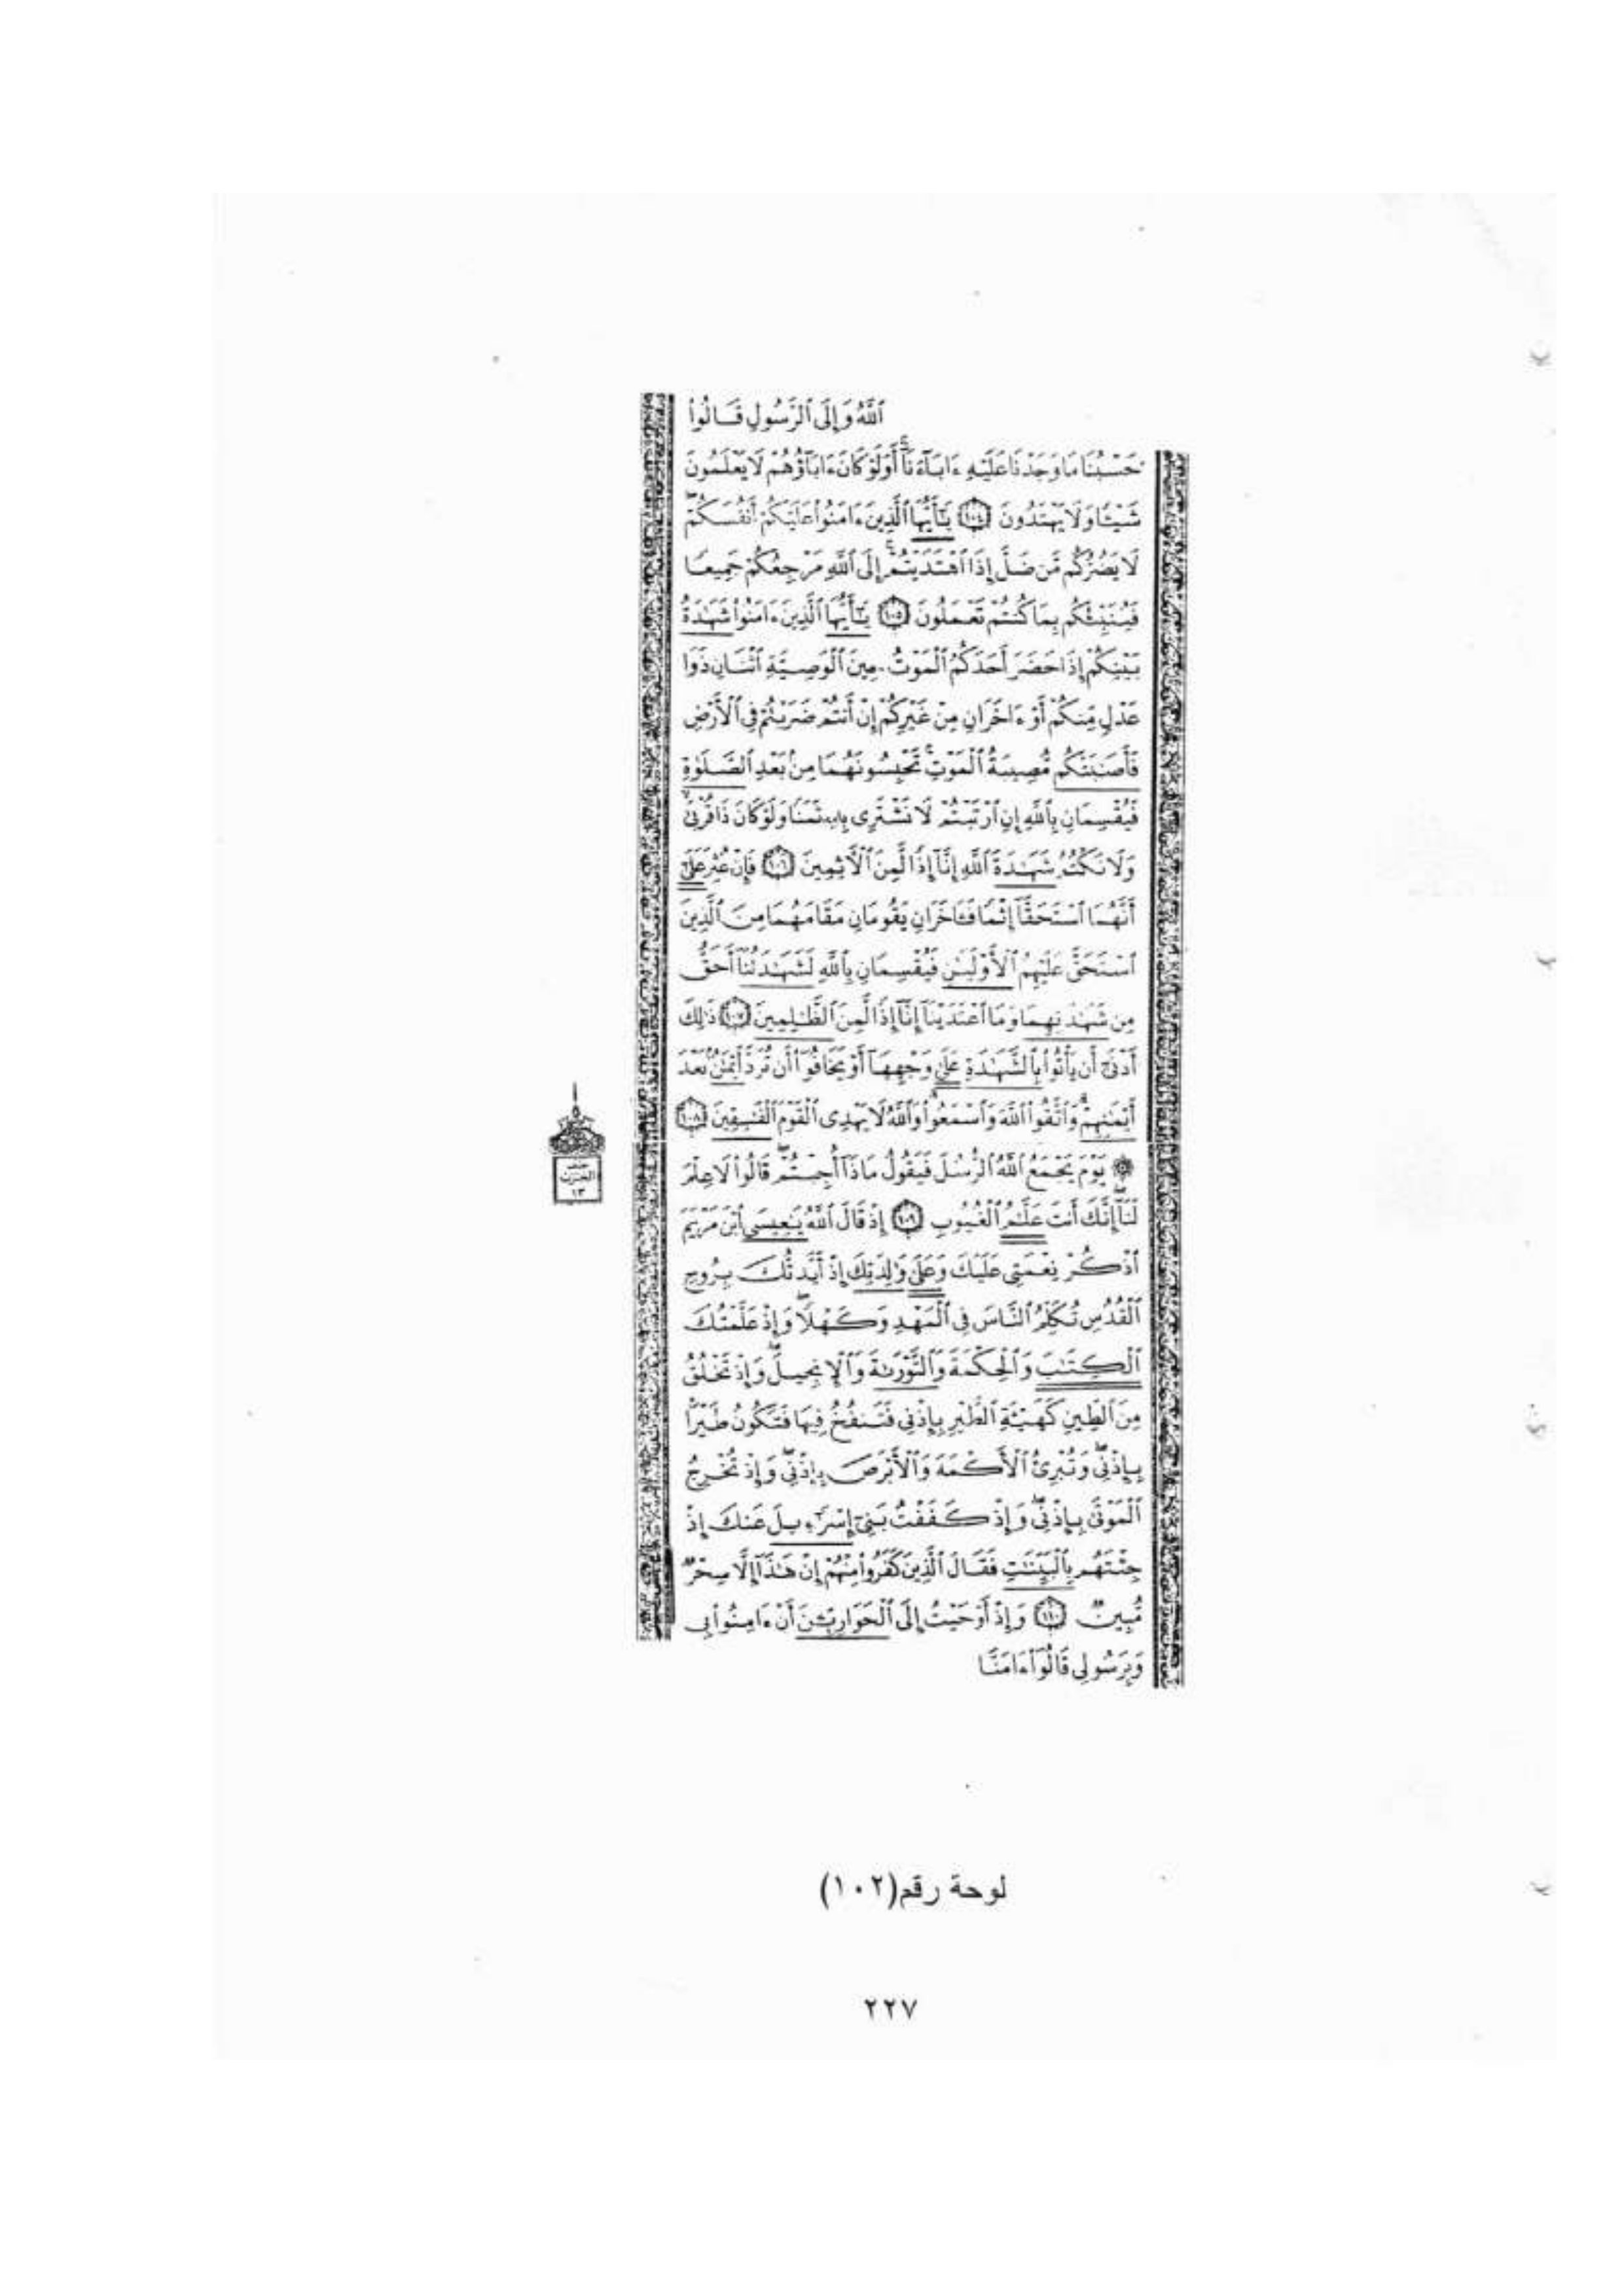 ٱللَّهُ وَإِلَى ٱلرَّسُولِ قَالُوا۟
حَسْبُنَا مَا وَجَدْنَا عَلَيْهِ ءَابَآءَنَآ ۚ أَوَلَوْ كَانَ ءَابَآؤُهُمْ لَا يَعْلَمُونَ
شَيْـًٔا وَلَا يَهْتَدُونَ ١٠٤ يَـٰٓأَيُّهَا ٱلَّذِينَ ءَامَنُوا۟ عَلَيْكُمْ أَنفُسَكُمْ ۖ
لَا يَضُرُّكُم مَّن ضَلَّ إِذَا ٱهْتَدَيْتُمْ ۚ إِلَى ٱللَّهِ مَرْجِعُكُمْ جَمِيعًا
فَيُنَبِّئُكُم بِمَا كُنتُمْ تَعْمَلُونَ ١٠٥ يَـٰٓأَيُّهَا ٱلَّذِينَ ءَامَنُوا۟ شَهَـٰدَةُ
بَيْنِكُمْ إِذَا حَضَرَ أَحَدَكُمُ ٱلْمَوْتُ حِينَ ٱلْوَصِيَّةِ ٱثْنَانِ ذَوَا
عَدْلٍ مِّنكُمْ أَوْ ءَاخَرَانِ مِنْ غَيْرِكُمْ إِنْ أَنتُمْ ضَرَبْتُمْ فِى ٱلْأَرْضِ
فَأَصَـٰبَتْكُم مُّصِيبَةُ ٱلْمَوْتِ ۚ تَحْبِسُونَهُمَا مِنۢ بَعْدِ ٱلصَّلَوٰةِ
فَيُقْسِمَانِ بِٱللَّهِ إِنِ ٱرْتَبْتُمْ لَا نَشْتَرِى بِهِۦ ثَمَنًا وَلَوْ كَانَ ذَا قُرْبَىٰ ۙ
وَلَا نَكْتُمُ شَهَـٰدَةَ ٱللَّهِ إِنَّآ إِذًا لَّمِنَ ٱلْـَٔاثِمِينَ ١٠٦ فَإِنْ عُثِرَ عَلَىٰٓ
أَنَّهُمَا ٱسْتَحَقَّآ إِثْمًا فَـَٔاخَرَانِ يَقُومَانِ مَقَامَهُمَا مِنَ ٱلَّذِينَ
ٱسْتَحَقَّ عَلَيْهِمُ ٱلْأَوْلَيَـٰنِ فَيُقْسِمَانِ بِٱللَّهِ لَشَهَـٰدَتُنَآ أَحَقُّ
مِن شَهَـٰدَتِهِمَا وَمَا ٱعْتَدَيْنَآ إِنَّآ إِذًا لَّمِنَ ٱلظَّـٰلِمِينَ ١٠٧ ذَٰلِكَ
أَدْنَىٰٓ أَن يَأْتُوا۟ بِٱلشَّهَـٰدَةِ عَلَىٰ وَجْهِهَآ أَوْ يَخَافُوٓا۟ أَن تُرَدَّ أَيْمَـٰنٌۢ بَعْدَ
أَيْمَـٰنِهِمْ ۗ وَٱتَّقُوا۟ ٱللَّهَ وَٱسْمَعُوا۟ ۗ وَٱللَّهُ لَا يَهْدِى ٱلْقَوْمَ ٱلْفَـٰسِقِينَ ١٠٨
۞ يَوْمَ يَجْمَعُ ٱللَّهُ ٱلرُّسُلَ فَيَقُولُ مَاذَآ أُجِبْتُمْ ۖ قَالُوا۟ لَا عِلْمَ
لَنَآ ۖ إِنَّكَ أَنتَ عَلَّـٰمُ ٱلْغُيُوبِ ١٠٩ إِذْ قَالَ ٱللَّهُ يَـٰعِيسَى ٱبْنَ مَرْيَمَ
ٱذْكُرْ نِعْمَتِى عَلَيْكَ وَعَلَىٰ وَٰلِدَتِكَ إِذْ أَيَّدتُّكَ بِرُوحِ
ٱلْقُدُسِ تُكَلِّمُ ٱلنَّاسَ فِى ٱلْمَهْدِ وَكَهْلًا ۖ وَإِذْ عَلَّمْتُكَ
ٱلْكِتَـٰبَ وَٱلْحِكْمَةَ وَٱلتَّوْرَىٰةَ وَٱلْإِنجِيلَ ۖ وَإِذْ تَخْلُقُ
مِنَ ٱلطِّينِ كَهَيْـَٔةِ ٱلطَّيْرِ بِإِذْنِى فَتَنفُخُ فِيهَا فَتَكُونُ طَيْرًۢا
بِإِذْنِى ۖ وَتُبْرِئُ ٱلْأَكْمَهَ وَٱلْأَبْرَصَ بِإِذْنِى ۖ وَإِذْ تُخْرِجُ
ٱلْمَوْتَىٰ بِإِذْنِى ۖ وَإِذْ كَفَفْتُ بَنِىٓ إِسْرَٰٓءِيلَ عَنكَ إِذْ
جِئْتَهُم بِٱلْبَيِّنَـٰتِ فَقَالَ ٱلَّذِينَ كَفَرُوا۟ مِنْهُمْ إِنْ هَـٰذَآ إِلَّا سِحْرٌ
مُّبِينٌ ١١٠ وَإِذْ أَوْحَيْتُ إِلَى ٱلْحَوَارِيِّـۧنَ أَنْ ءَامِنُوا۟ بِى
وَبِرَسُولِى قَالُوٓا۟ ءَامَنَّا
الحزب
١٣
لوحة رقم(١٠٢)
٢٢٧